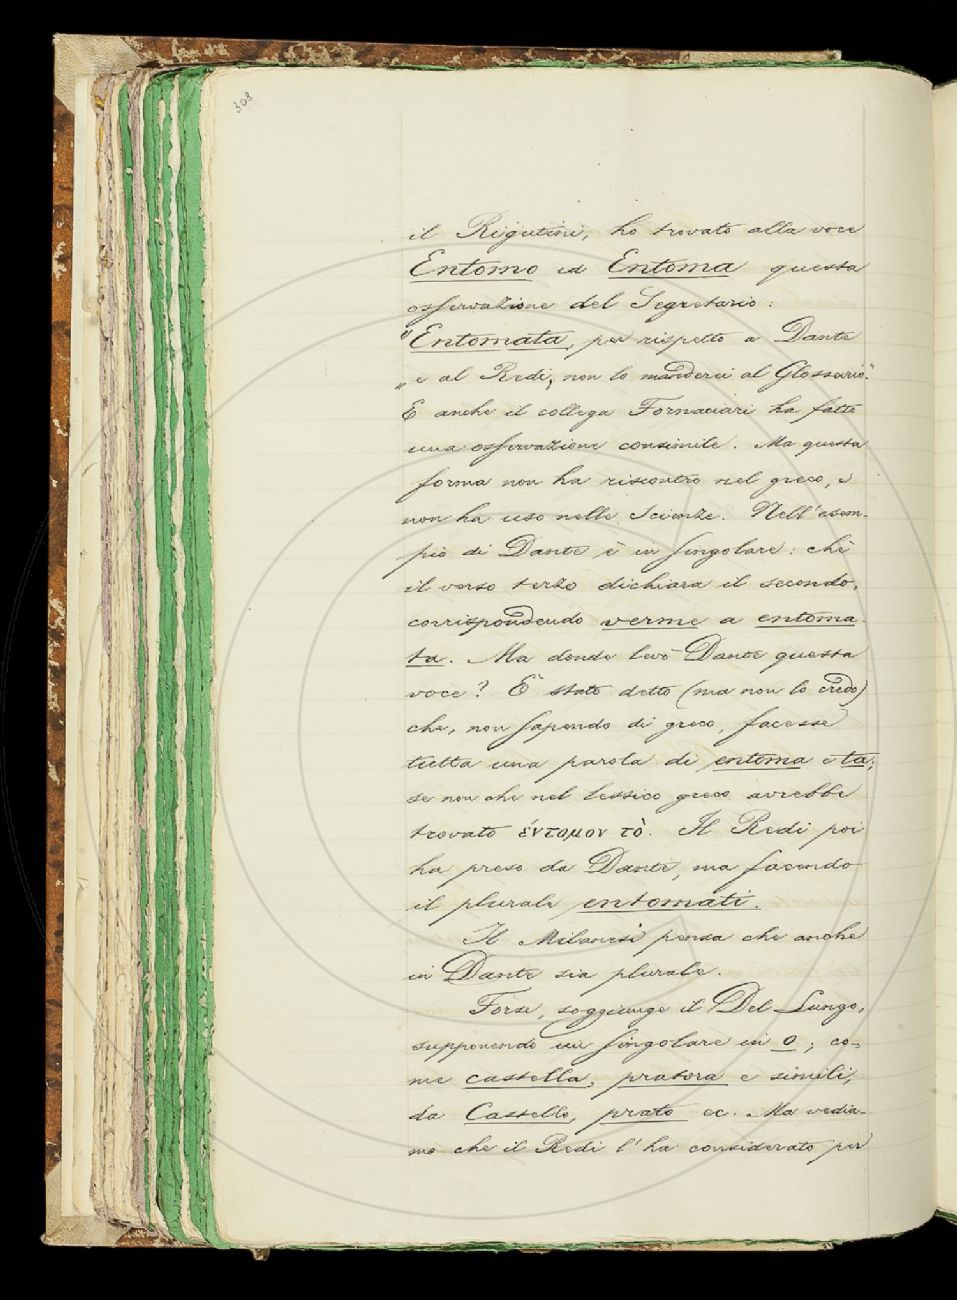 308
il Rigutini, ho trovato alla voce
Entomo ed Entoma questa
osservazione del Segretario:
"Entomata, per rispetto a Dante
„e al Redi, non lo manderei al Glossario."
E anche il collega Fornaciari ha fatto
una osservazione consimile. Ma questa
forma non ha riscontro nel greco, e
non ha uso nelle Scienze. Nell'esem-
pio di Dante è in singolare: chè
il verso terzo dichiara il secondo,
corrispondendo verme a entoma-
ta. Ma donde levò Dante questa
voce? È stato detto (ma non lo credo)
che, non sapendo di greco, facesse
tutta una parola di entoma e ta;
se non che nel lessico greco avrebbe
trovato έντομον τὸ. Il Redi poi
ha preso da Dante, ma facendo
il plurale entomati.
Il Milanesi pensa che anche
in Dante sia plurale.
Forse, soggiunge il Del Lungo,
supponendo un singolare in o; co-
me castella, pratora e simili,
da Castello, prato ec. Ma vedia-
mo che il Redi l'ha considerato per